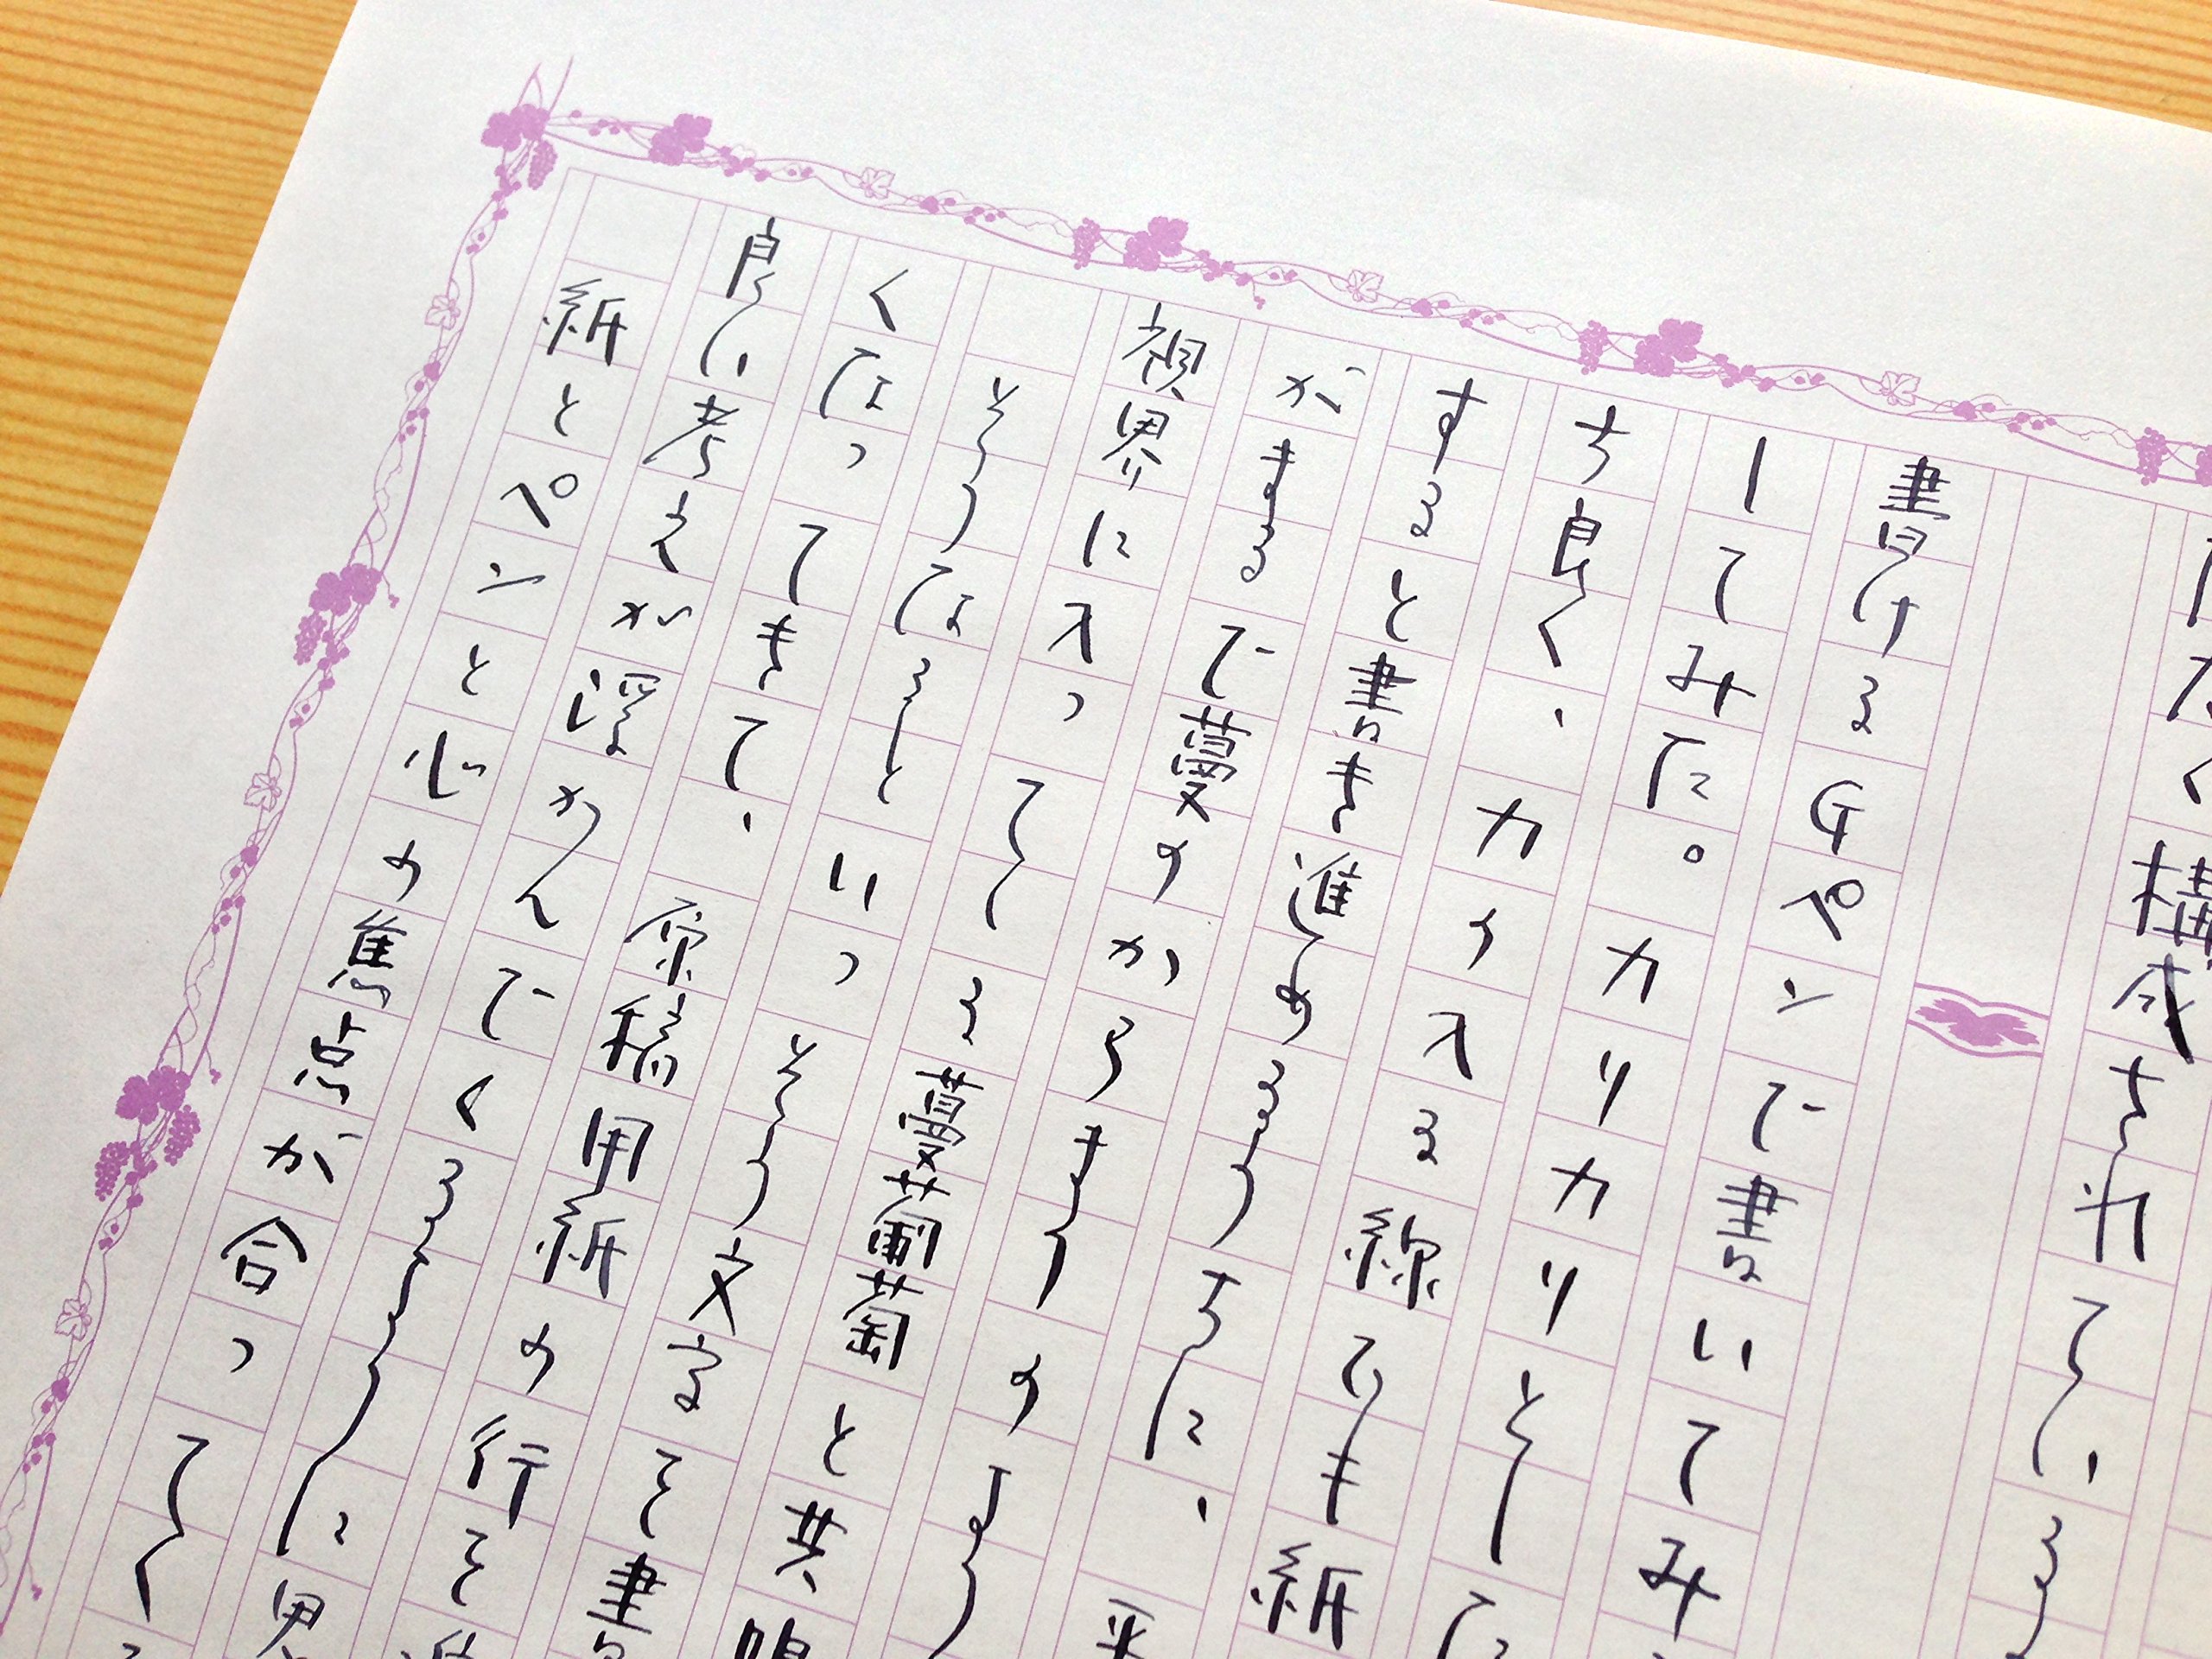 たく構成されている
書けるGペンで書いてみ
してみた。カリカリとした
ち良く、力の入る線でも紙
すると書き進めるうちに、平
がまるで蔓のからまりのよう
視界に入っている蔓葡萄と共鳴
そうなるといっそう文字を書
くなってきて、原稿用紙の行を
良い考えが浮かんでくるように思
紙とペンと心の焦点が合ってく